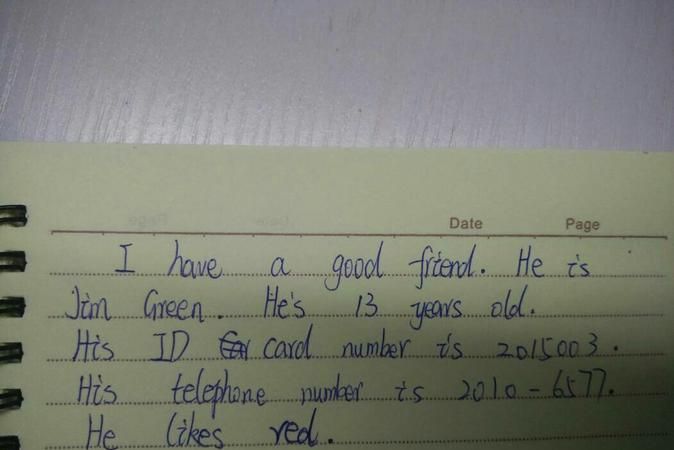 Date Page
I have a good friend. He is
Jim Green. He's 13 years old.
His ID card number is 2015003.
His telephone number is 2010-6577.
He likes red.